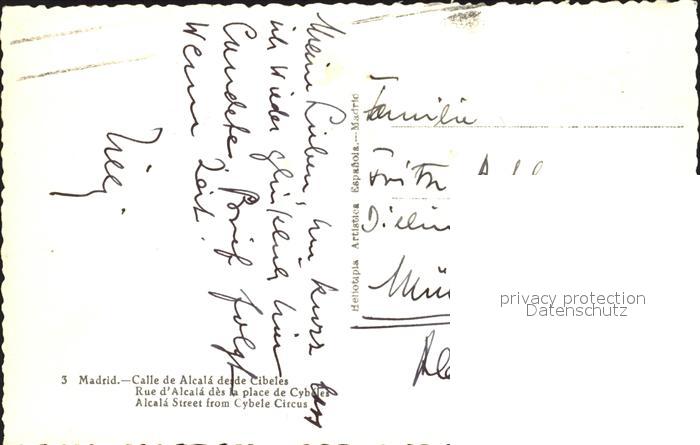 Meine Lieben, nur kurz dass
ich wieder glücklich hier
landete. Brief folgt
wenn Zeit.
Heliotipia Artística Española.—Madrid
Familie
Fritz
Mün
privacy protection
Datenschutz
3 Madrid.—Calle de Alcalá desde Cibeles
Rue d'Alcalá dès la place de Cybèles
Alcalá Street from Cybele Circus